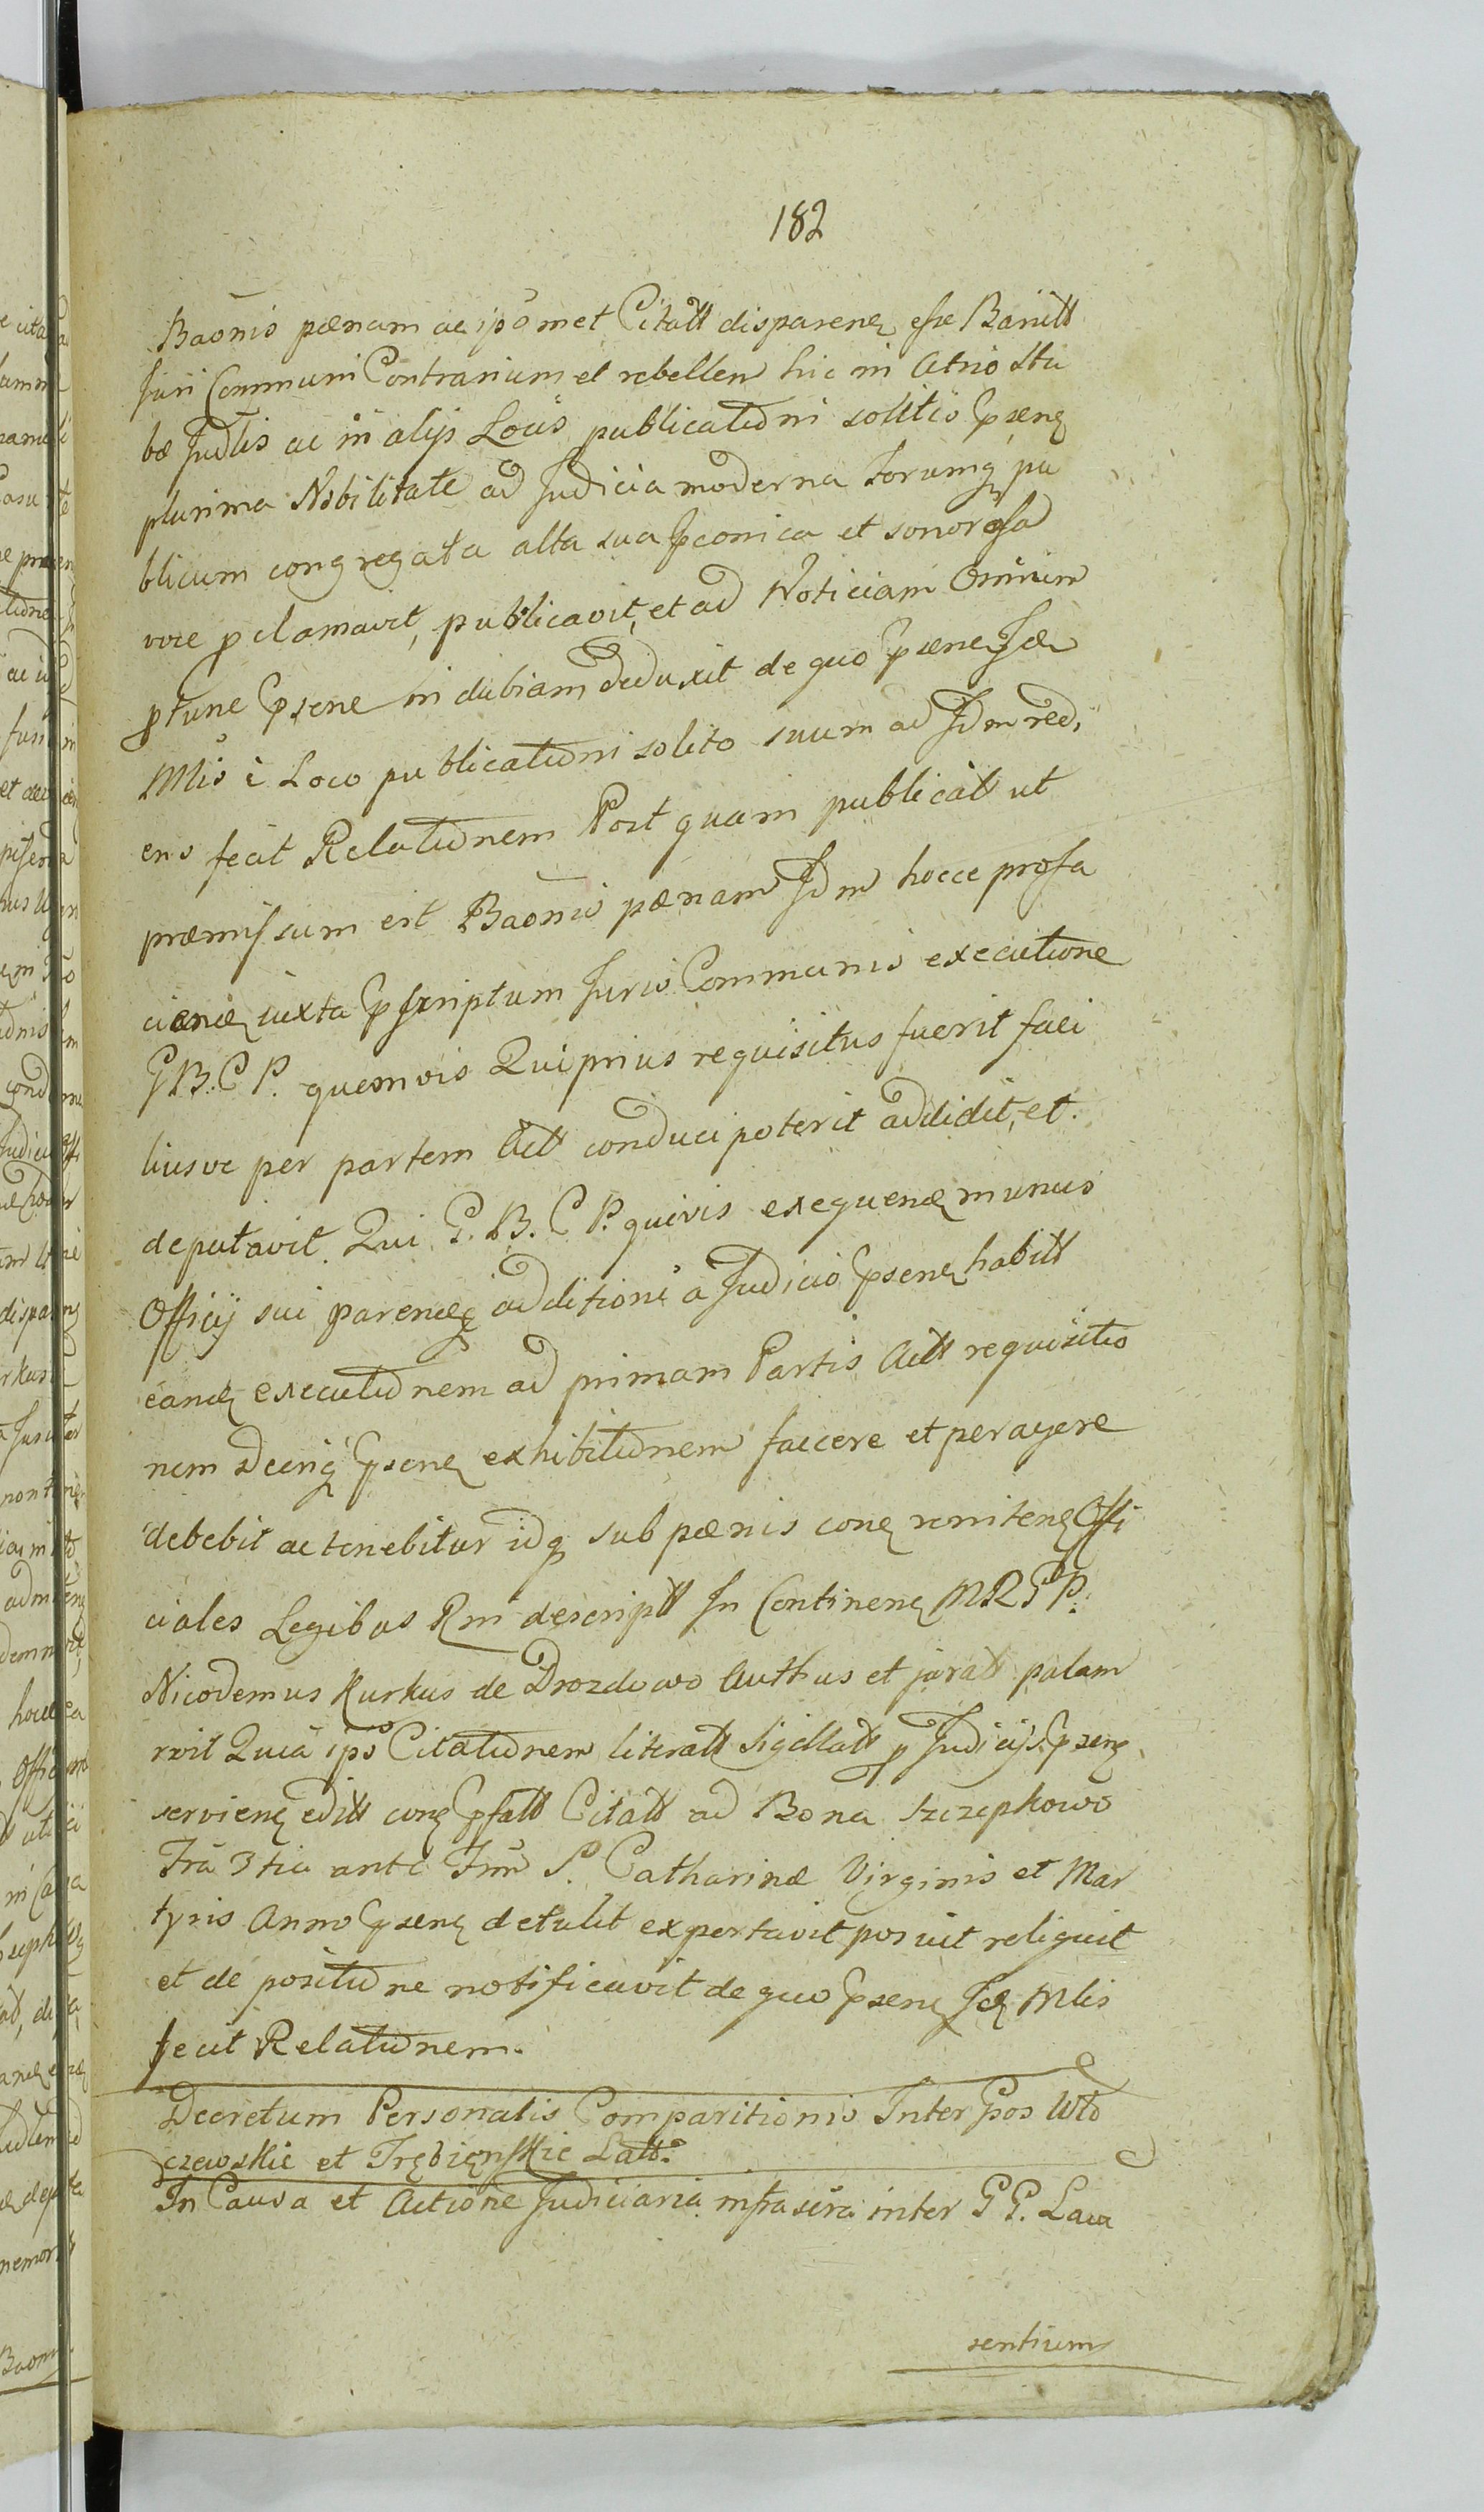 182
Baõnis pœnam ac ipõmet Citatt disparenȩ esse Banitt
Juri Communi Contrarium et rebellem hic in Atrio Stu
bæ Judlis ac in alijs Locis publicationi solitis Ppsenȩ
plurima Nobilitate ad Judicia moderna Forumqȝ pu
blicum congregata alta sua Pconica et sonorosa
voce pclamavit, publicavit, et ad Noticiam Omnium
ptunc Ppsene indubiam deduxit de quo Ppsene Jdȩ
Mlis è Loco publicationi solito suum ad Jdm redi
ens fecit Relationem Post quam publicatt ut
præmissum est Baõnis pœnam Jdm hocce prosa
cianȩ iuxta Ppscriptum Juris Communis executione
G B. C P. quemvis Qui prius requisitus fuerit faci
liusve per partem Actt conduci poterit addidit, et
deputavit. Qui G. B. C P. quivis exequenȩ munus
Officij sui parenȩqȝ additioni a Judicio Ppsenȩ habitt
eanȩ executionem ad primam Partis Actt requisitio
nem Deiinqȝ Ppsenȩ exhibitionem faccere et peragere
debebit ac tenebitur idqȝ sub pœnis conȩ renitenȩ Offi
ciales Legibus Rni descriptt In Continenȩ MRGP.
Nicodemus Kurkus de Drozdowo Authus et juratt palam
rvit Quia ipõ Citationem literatt Sigillatt p Judicijs Ppsenȩ
servienȩ editt conȩ Ppfatt Citatt ad Bona Szczepkowo
Fra 3tia ante Fm S. Catharinæ Virginis et Mar
tyris Anno Ppsenȩ detulit exportavit posuit reliquit
et de positione notificavit de quo Ppsenȩ Jdȩ Mlis
fecit Relationem.
Decretum Personalis Comparitionis Inter Gsos Wło
czewskie et Trębienskie Latt.
In Causa et Actione Judiciaria infrascra inter G G. Laca
sentium